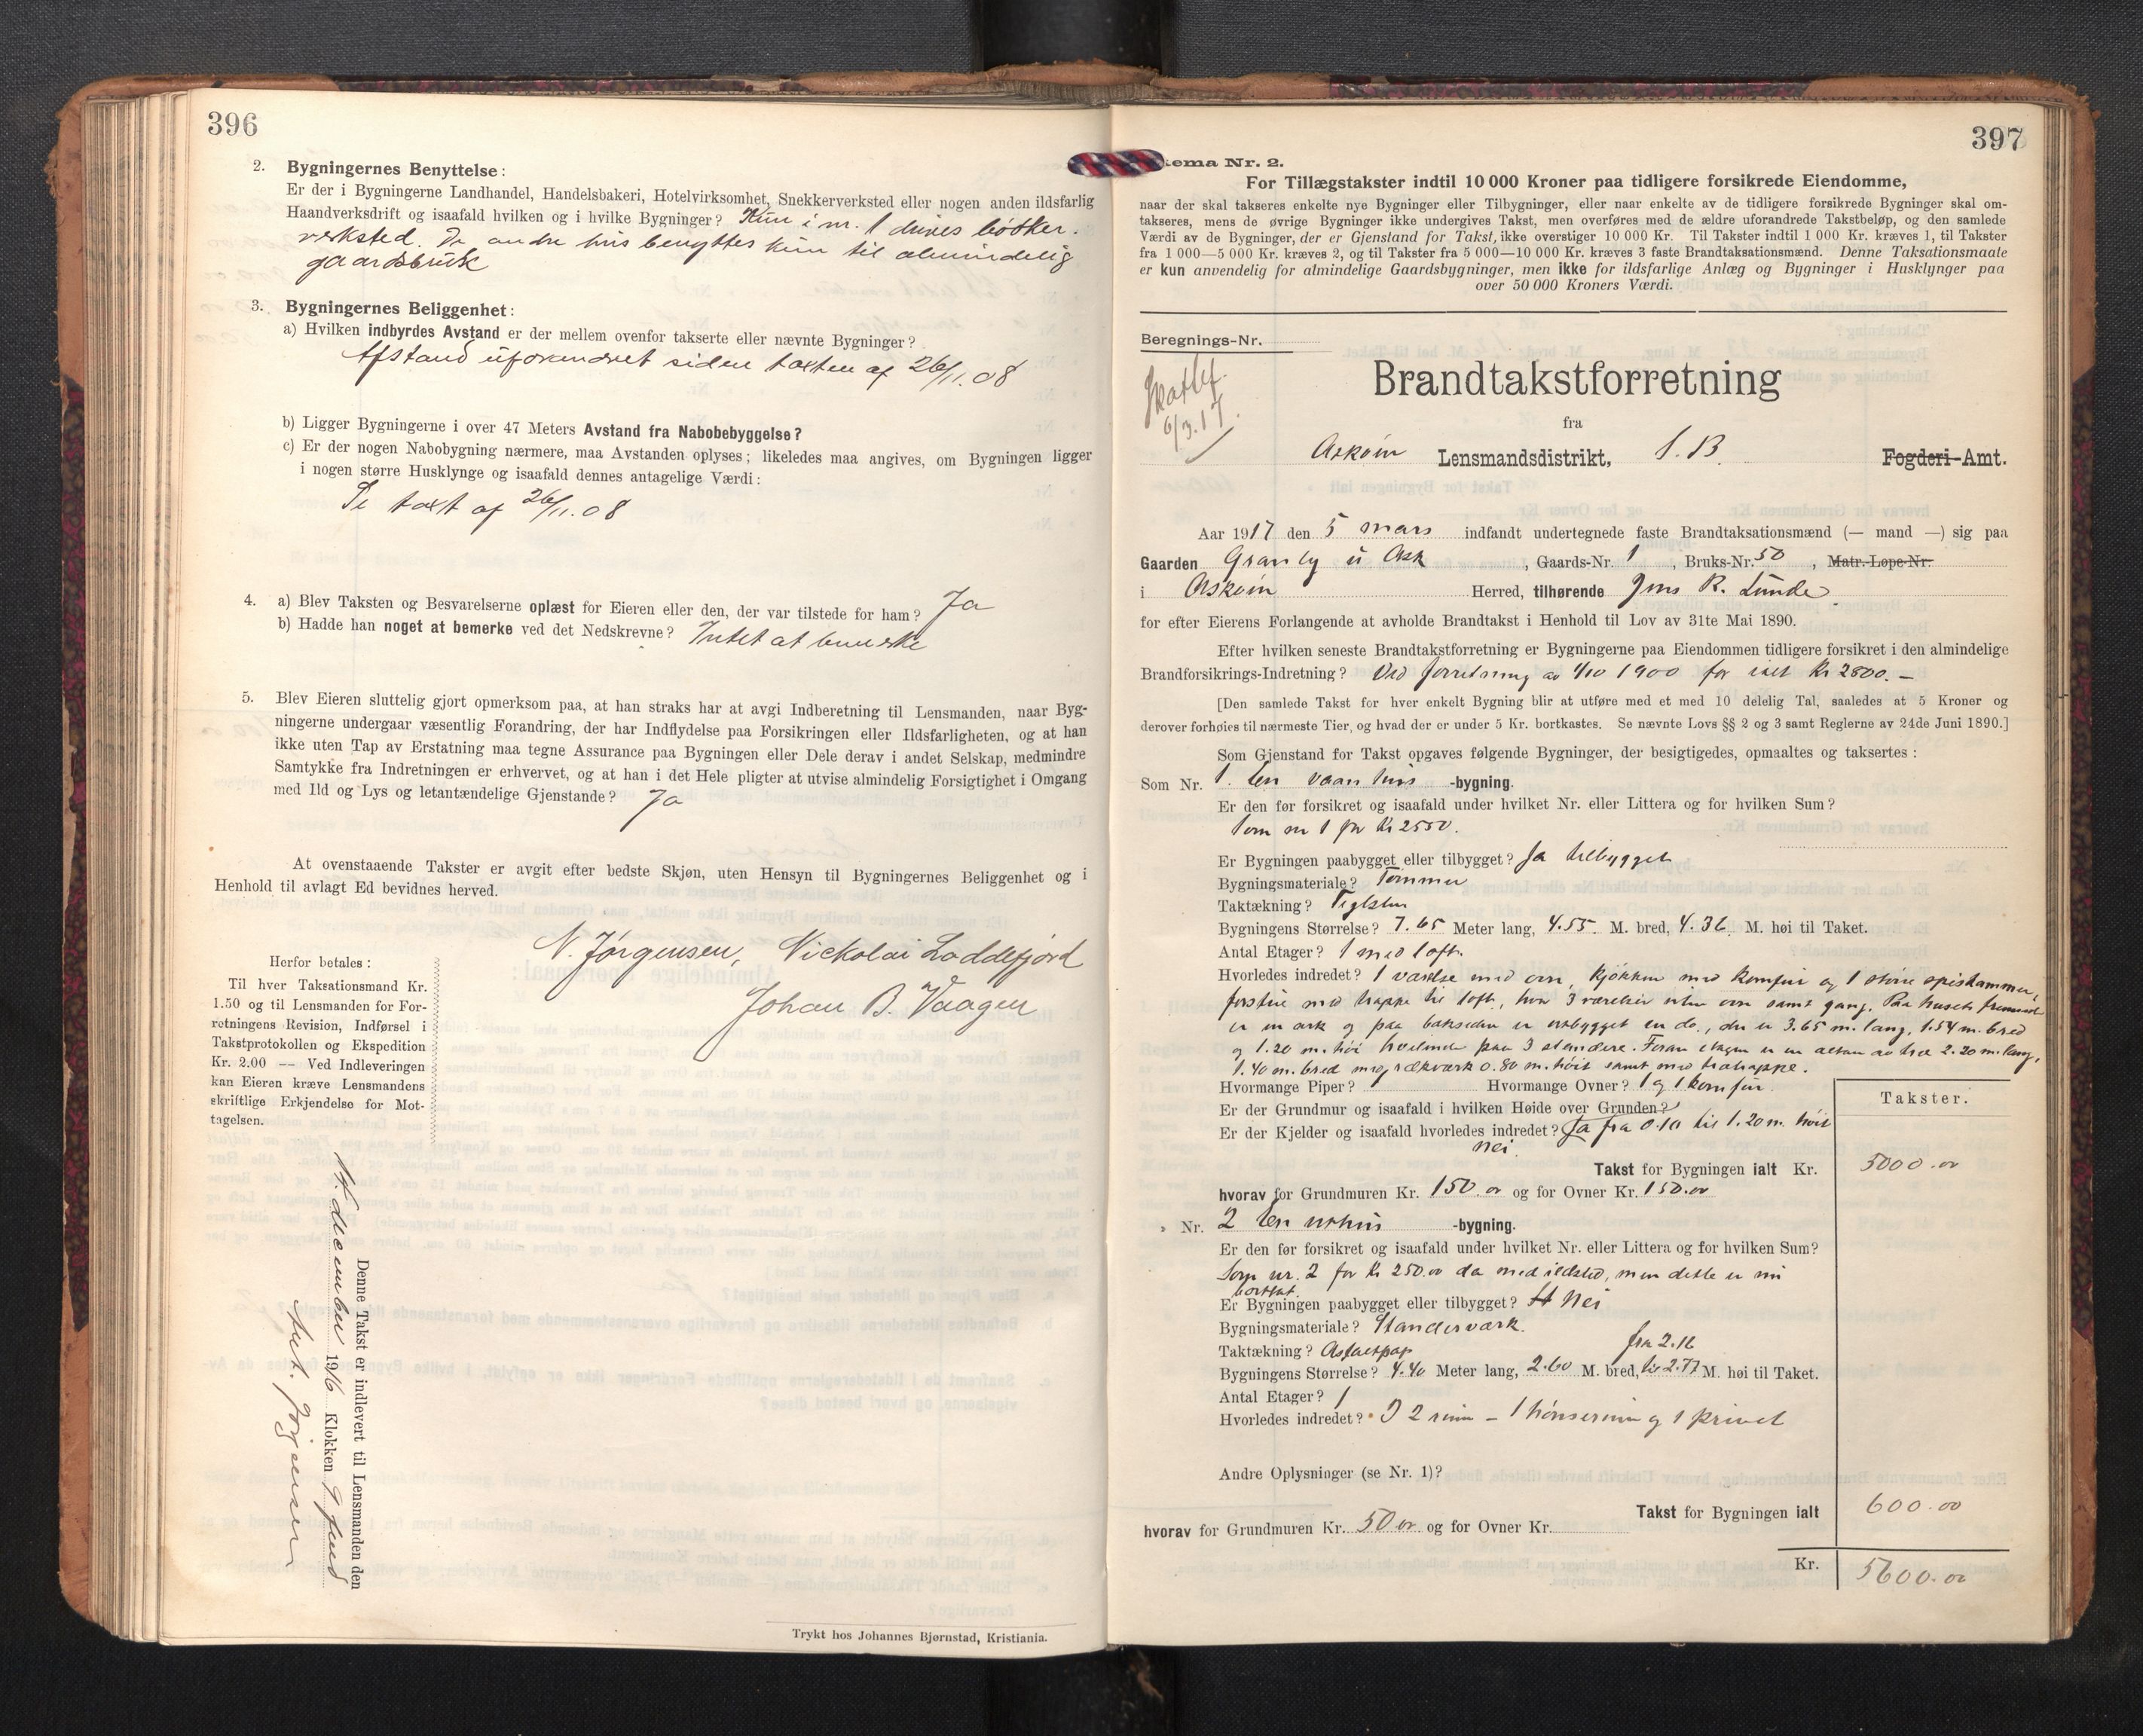 396
2. Bygningernes Benyttelse:
Er der i Bygningerne Landhandel, Handelsbakeri, Hotelvirksomhet, Snekkerverksted eller nogen anden ildsfarlig
Haandverksdrift og isaafald hvilken og i hvilke Bygninger? Kun i nr. 1 drives bödker.
verksted. De andre hus benyttes kun til almindelig
gaardsbruk
3. Bygningernes Beliggenhet:
a) Hvilken indbyrdes Avstand er der mellem ovenfor takserte eller nævnte Bygninger?
Afstand uforandret siden taxten af 26/11.08
b) Ligger Bygningerne i over 47 Meters Avstand fra Nabobebyggelse?
c) Er der nogen Nabobygning nærmere, maa Avstanden oplyses; likeledes maa angives, om Bygningen ligger
i nogen større Husklynge og isaafald dennes antagelige Værdi:
Se taxt af 26/11.08
4. a) Blev Taksten og Besvarelserne oplæst for Eieren eller den, der var tilstede for ham? Ja
b) Hadde han noget at bemerke ved det Nedskrevne? Intet at bemerke
5. Blev Eieren sluttelig gjort opmerksom paa, at han straks har at avgi Indberetning til Lensmanden, naar Byg-
ningerne undergaar væsentlig Forandring, der har Indflydelse paa Forsikringen eller Ildsfarligheten, og at han
ikke uten Tap av Erstatning maa tegne Assurance paa Bygningen eller Dele derav i andet Selskap, medmindre
Samtykke fra Indretningen er erhvervet, og at han i det Hele pligter at utvise almindelig Forsigtighet i Omgang
med Ild og Lys og letantændelige Gjenstande? Ja
At ovenstaaende Takster er avgit efter bedste Skjøn, uten Hensyn til Bygningernes Beliggenhet og i
Henhold til avlagt Ed bevidnes herved.
N. Jørgensen, Nickolai Loddefjord
Johan B. Vaagen
Herfor betales:
Til hver Taksationsmand Kr.
1.50 og til Lensmanden for For-
retningens Revision, Indførsel i
Takstprotokollen og Ekspedition
Kr. 2.00 -- Ved Indleveringen
kan Eieren kræve Lensmandens
skriftlige Erkjendelse for Mot-
tagelsen.
Denne Takst er indlevert til Lensmanden den
december 1916 Klokken
Jørgensen
Trykt hos Johannes Bjørnstad, Kristiania.
397
ema Nr. 2.
For Tillægstakster indtil 10 000 Kroner paa tidligere forsikrede Eiendomme,
naar der skal takseres enkelte nye Bygninger eller Tilbygninger, eller naar enkelte av de tidligere forsikrede Bygninger skal om-
takseres, mens de øvrige Bygninger ikke undergives Takst, men overføres med de ældre uforandrede Takstbeløp, og den samlede
Værdi av de Bygninger, der er Gjenstand for Takst, ikke overstiger 10 000 Kr. Til Takster indtil 1 000 Kr. kræves 1, til Takster
fra 1 000—5 000 Kr. kræves 2, og til Takster fra 5 000—10 000 Kr. kræves 3 faste Brandtaksationsmænd. Denne Taksationsmaate
er kun anvendelig for almindelige Gaardsbygninger, men ikke for ildsfarlige Anlæg og Bygninger i Husklynger paa
over 50 000 Kroners Værdi.
Beregnings-Nr.
6/3.17.
Brandtakstforretning
fra
Askøin Lensmandsdistrikt, S. B. Fogderi-Amt.
Aar 1917 den 5 mars indfandt undertegnede faste Brandtaksationsmænd (— mand —) sig paa
Gaarden Granly u Ask, Gaards-Nr. 1, Bruks-Nr. 50, Matr.-Løpe-Nr.
i Askøin Herred, tilhørende Jens R. Lunde
for efter Eierens Forlangende at avholde Brandtakst i Henhold til Lov av 31te Mai 1890.
Efter hvilken seneste Brandtakstforretning er Bygningerne paa Eiendommen tidligere forsikret i den almindelige
Brandforsikrings-Indretning? Ved forretning av 4/10 1900 for ialt Kr 2800.—
[Den samlede Takst for hver enkelt Bygning blir at utføre med et med 10 delelig Tal, saaledes at 5 Kroner og
derover forhøies til nærmeste Tier, og hvad der er under 5 Kr. bortkastes. Se nævnte Lovs §§ 2 og 3 samt Reglerne av 24de Juni 1890.]
Som Gjenstand for Takst opgaves følgende Bygninger, der besigtigedes, opmaaltes og taksertes:
Som Nr. 1. En vaanhus -bygning.
Er den før forsikret og isaafald under hvilket Nr. eller Littera og for hvilken Sum?
Som nr 1 for Kr 2550.
Er Bygningen paabygget eller tilbygget? Ja tilbygget
Bygningsmateriale? Tømmer
Taktækning? Teglsten
Bygningens Størrelse? 7.65 Meter lang, 4.55 M. bred, 4.36 M. høi til Taket.
Antal Etager? 1 med loft.
Hvorledes indredet? 1 værelse med ovn, kjøkken med komfur og 1 större spiskammer,
forstue med trappe til loft, hvor 3 værelser uten ovn samt gang. Paa husets fremside
er en ark og paa baksiden er utbygget en do., der er 3.65 m. lang, 1.54 m. bred
og 1.20 m. höi hvilende paa 3 stendere. Foran etagen er en altan av træ 2.20 m. lang,
1.40 m. bred med rækværk 0.80 m. höit samt med trætrappe.
Hvormange Piper? 1 Hvormange Ovner? 1 og 1 komfur.
Er der Grundmur og isaafald i hvilken Høide over Grunden?
Er der Kjelder og isaafald hvorledes indredet? Ja fra 0.10 til 1.20 m. höit
Nei.
Takster.
Takst for Bygningen ialt Kr. 5000.00
hvorav for Grundmuren Kr. 150.00 og for Ovner Kr. 150.00
» Nr. 2 En uthus -bygning.
Er den før forsikret og isaafald under hvilket Nr. eller Littera og for hvilken Sum?
Som nr. 2 for Kr 250.00 da med ildsted, men dette er nu
borttat.
Er Bygningen paabygget eller tilbygget? Nei
Bygningsmateriale? Standerværk.
Taktækning? Asfaltpap
fra 2.16
Bygningens Størrelse? 4.40 Meter lang, 2.60 M. bred, til 2.77 M. høi til Taket.
Antal Etager? 1
Hvorledes indredet? I 2 rum — 1 hönserum og 1 privet
Andre Oplysninger (se Nr. 1)?
Takst for Bygningen ialt 600.00
hvorav for Grundmuren Kr. 50.00 og for Ovner Kr.
Kr. 5600.00